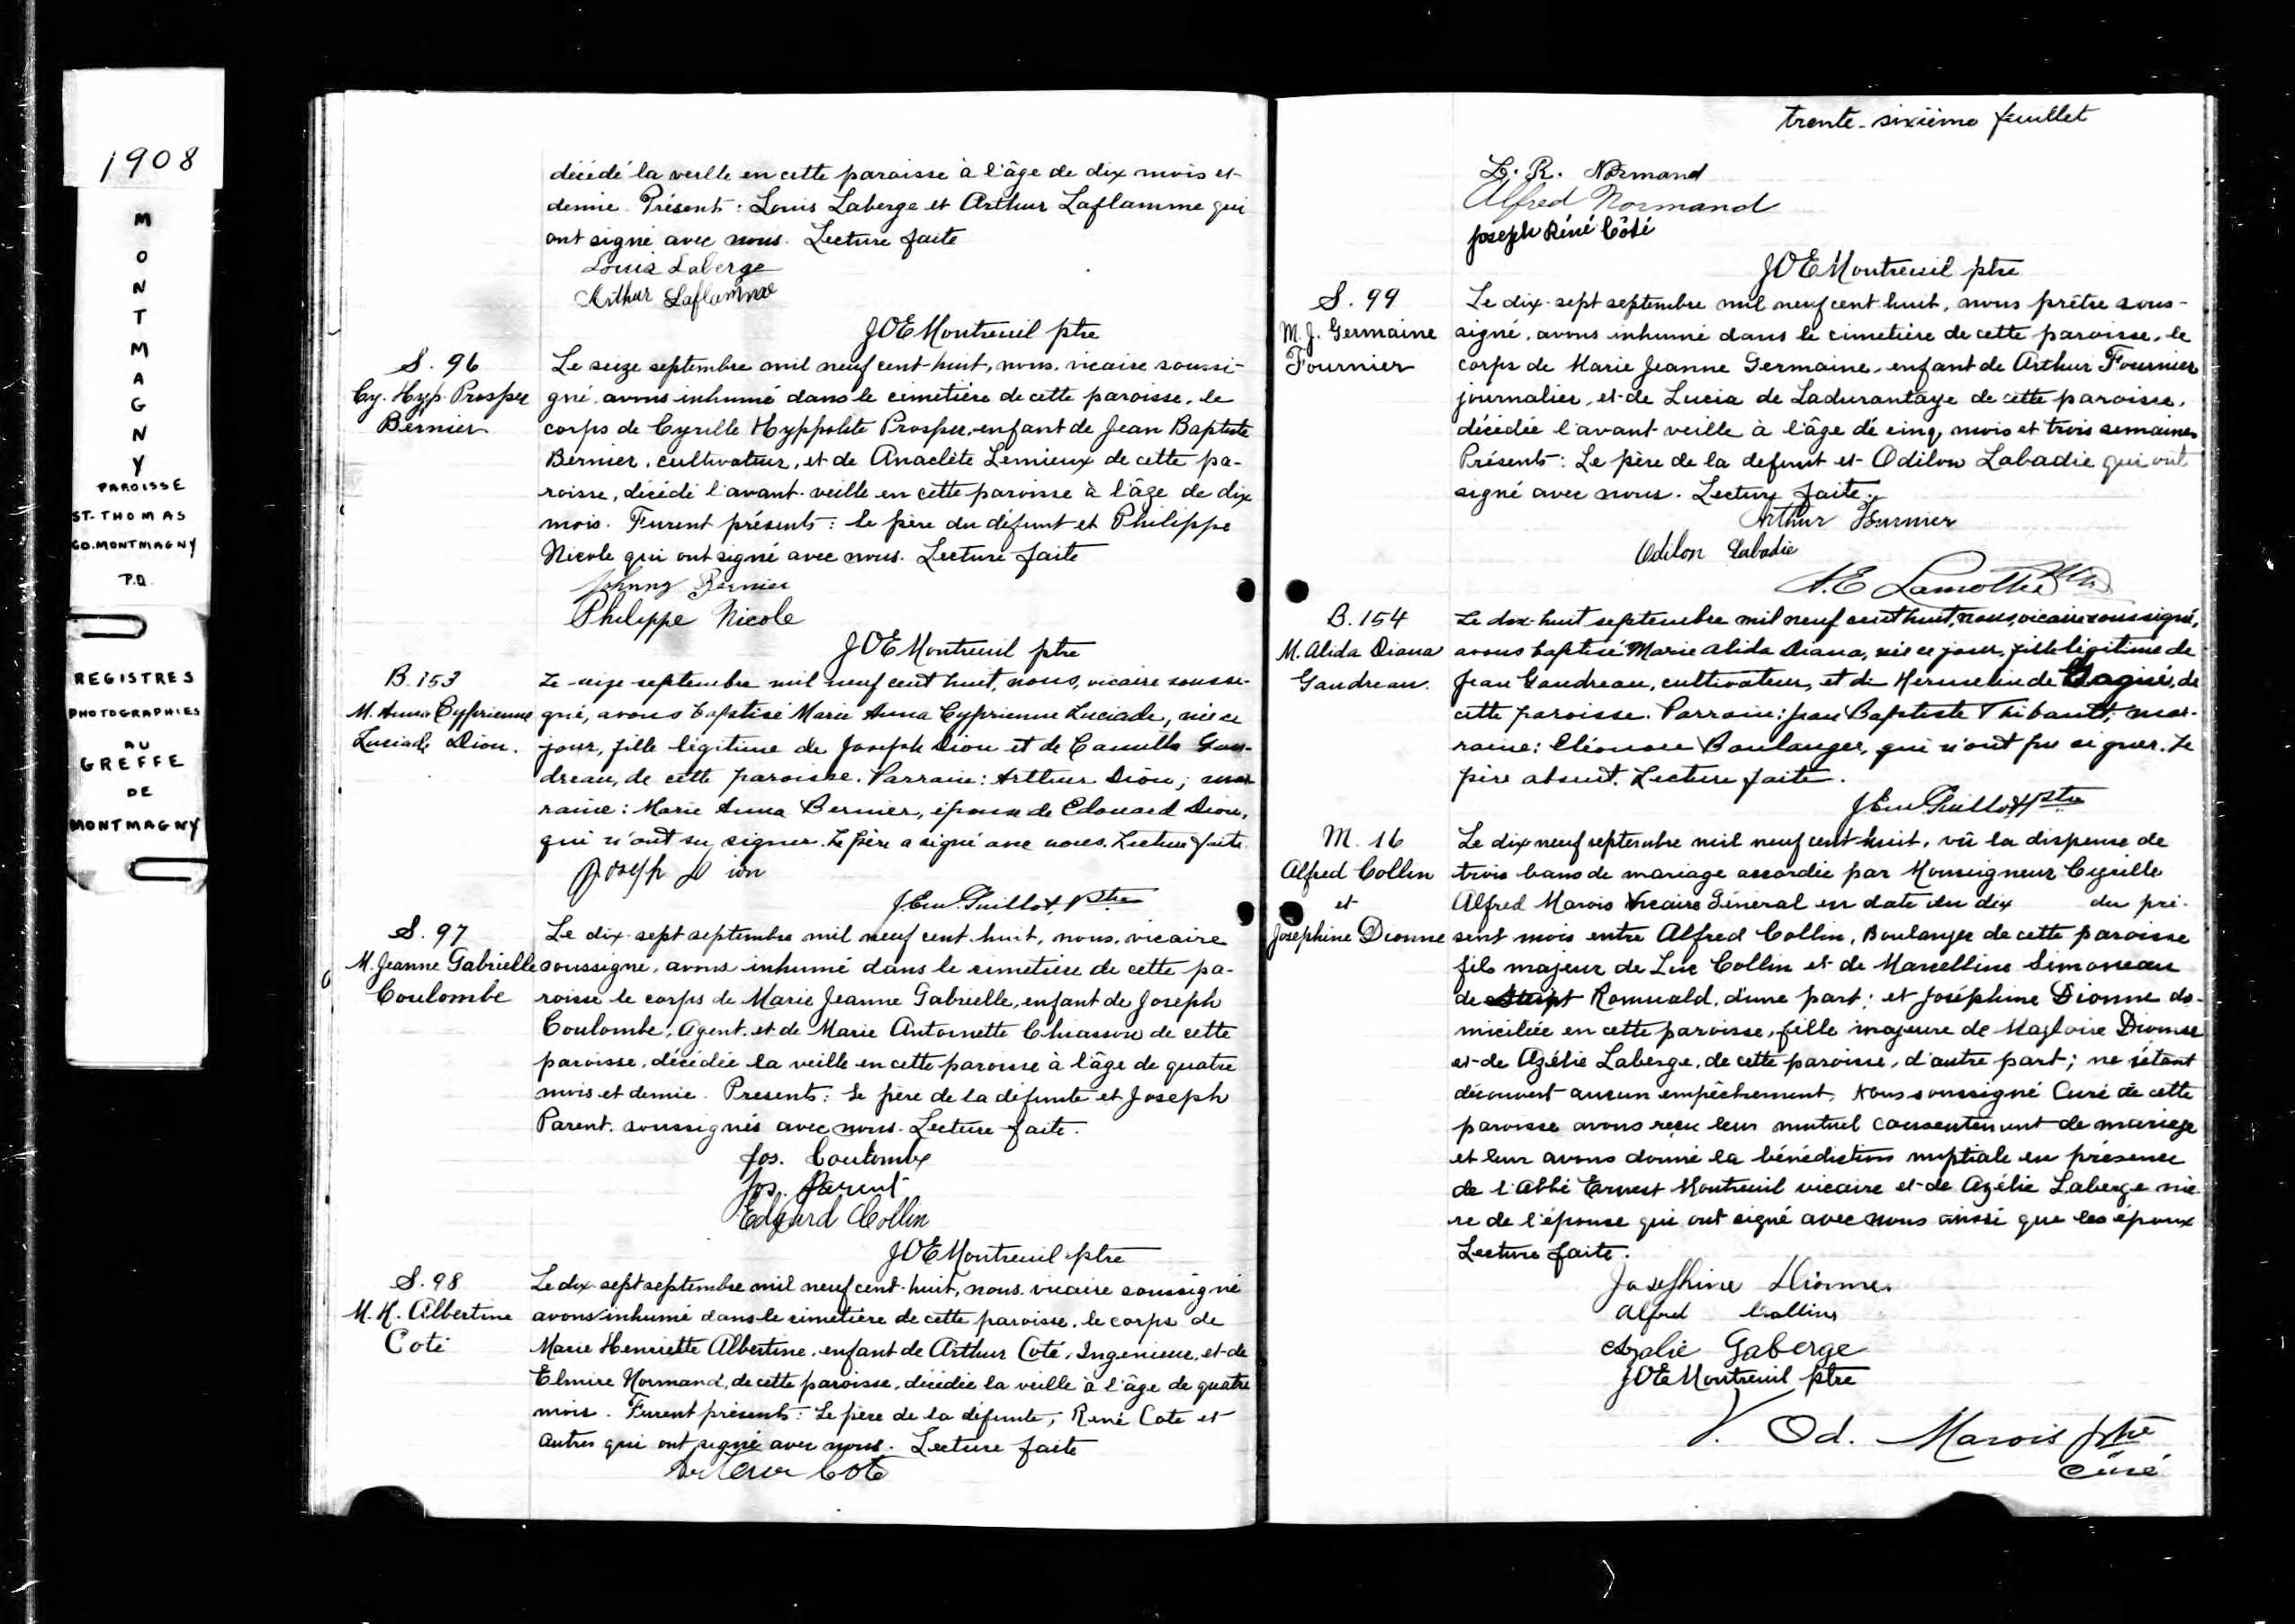 1908
MONTMAGNY
PAROISSE
ST-THOMAS
CO. MONTMAGNY
P.Q.
REGISTRES
PHOTOGRAPHIES
AU
GREFFE
DE
MONTMAGNY
décédé la veille en cette paroisse à l'âge de dix mois et
demie. Présents : Louis Laberge et Arthur Laflamme qui
ont signé avec nous. Lecture faite
Louis Laberge
Arthur Laflamme
JOE Montreuil ptre
S. 96
Cy. Hyp. Prosper
Bernier
Le seize septembre mil neuf cent-huit, nous, vicaire soussi-
gné, avons inhumé dans le cimetière de cette paroisse, le
corps de Cyrille Hyppolite Prosper, enfant de Jean Baptiste
Bernier, cultivateur, et de Anaclète Lemieux de cette pa-
roisse, décédé l'avant-veille en cette paroisse à l'âge de dix
mois. Furent présents : le père du défunt et Philippe
Nicole qui ont signé avec nous. Lecture faite
Johnny Bernier
Philippe Nicole
JOE Montreuil ptre
B. 153
M. Anna Cyprienne
Luciade Dion.
Le seize septembre mil neuf cent huit, nous, vicaire soussi-
gné, avons baptisé Marie Anna Cyprienne Luciade, née ce
jour, fille légitime de Joseph Dion et de Camilla Gau-
dreau, de cette paroisse. Parrain : Arthur Dion ; mar-
raine : Marie Anna Bernier, épouse de Edouard Dion,
qui n'ont su signer. Le père a signé avec nous. Lecture faite.
Joseph Dion
J. Em. Guillot, Ptre
S. 97
M. Jeanne Gabrielle
Coulombe
Le dix-sept septembre mil neuf cent-huit, nous, vicaire
soussigné, avons inhumé dans le cimetière de cette pa-
roisse le corps de Marie Jeanne Gabrielle, enfant de Joseph
Coulombe, Agent, et de Marie Antoinette Chiasson de cette
paroisse, décédée la veille en cette paroisse à l'âge de quatre
mois et demie. Presents : Le père de la défunte et Joseph
Parent. soussignés avec nous. Lecture faite.
Jos. Coulombe
Jos. Parent
Edgard Collin
JOE Montreuil ptre
S. 98
M. H. Albertine
Coté
Le dix-sept septembre mil neuf cent-huit, nous vicaire soussigné
avons inhumé dans le cimetière de cette paroisse, le corps de
Marie Henriette Albertine, enfant de Arthur Coté, Ingénieur, et de
Elmire Normand, de cette paroisse, décédée la veille à l'âge de quatre
mois. Furent présents : Le père de la défunte, René Cote et
autres qui ont signé avec nous. Lecture faite
Arthur Coté
trente-sixième feuillet
L. R. Normand
Alfred Normand
Joseph Réné Côté
JOE Montreuil ptre
S. 99
M. J. Germaine
Fournier
Le dix-sept septembre mil neuf cent huit, nous prêtre sous-
signé, avons inhumé dans le cimetière de cette paroisse, le
corps de Marie Jeanne Germaine, enfant de Arthur Fournier
journalier, et de Lucia de Ladurantaye de cette paroisse,
décédée l'avant veille à l'âge de cinq mois et trois semaines
Présents : Le père de la defunt et Odilon Labadie qui ont
signé avec nous. Lecture faite.
Arthur Furnier
Odilon Labadie
A. E. Lamothe Ptre
B. 154
M. Alida Diana
Gaudreau.
Le dix-huit septembre mil neuf cent huit, nous, vicaire soussigné,
avons baptisé Marie Alida Diana, née ce jour, fille légitime de
Jean Gaudreau, cultivateur, et de Hermeline de Gagné, de
cette paroisse. Parrain : Jean Baptiste Thibault ; mar-
raine : Eléonore Boulanger, qui n'ont pu signer. Le
père absent. Lecture faite.
J. Em. Guillot Ptre
M. 16
Alfred Collin
et
Josephine Dionne
Le dix neuf septembre mil neuf cent-huit, vû la dispense de
trois bans de mariage accordée par Monseigneur Cyrille
Alfred Marois Vicaire Général en date du dix du pré-
sent mois entre Alfred Collin, Boulanger de cette paroisse
fils majeur de Luc Collin et de Marcelline Simoneau
de Romuald, d'une part ; et Joséphine Dionne do-
miciliée en cette paroisse, fille majeure de Magloire Dionne
et de Azélie Laberge, de cette paroisse, d'autre part ; ne s'étant
découvert aucun empêchement, Nous soussigné Curé de cette
paroisse avons reçu leur mutuel consentement de mariage
et leur avons donné la bénédiction nuptiale en présence
de l'Abbé Ernest Montreuil vicaire et de Azélie Laberge mè-
re de l'épouse qui ont signé avec nous ainsi que les époux
Lecture faite.
Josephine Dionne.
Alfred Collin
Azelie Laberge
JOE Montreuil ptre
V. Od. Marois ptre
curé